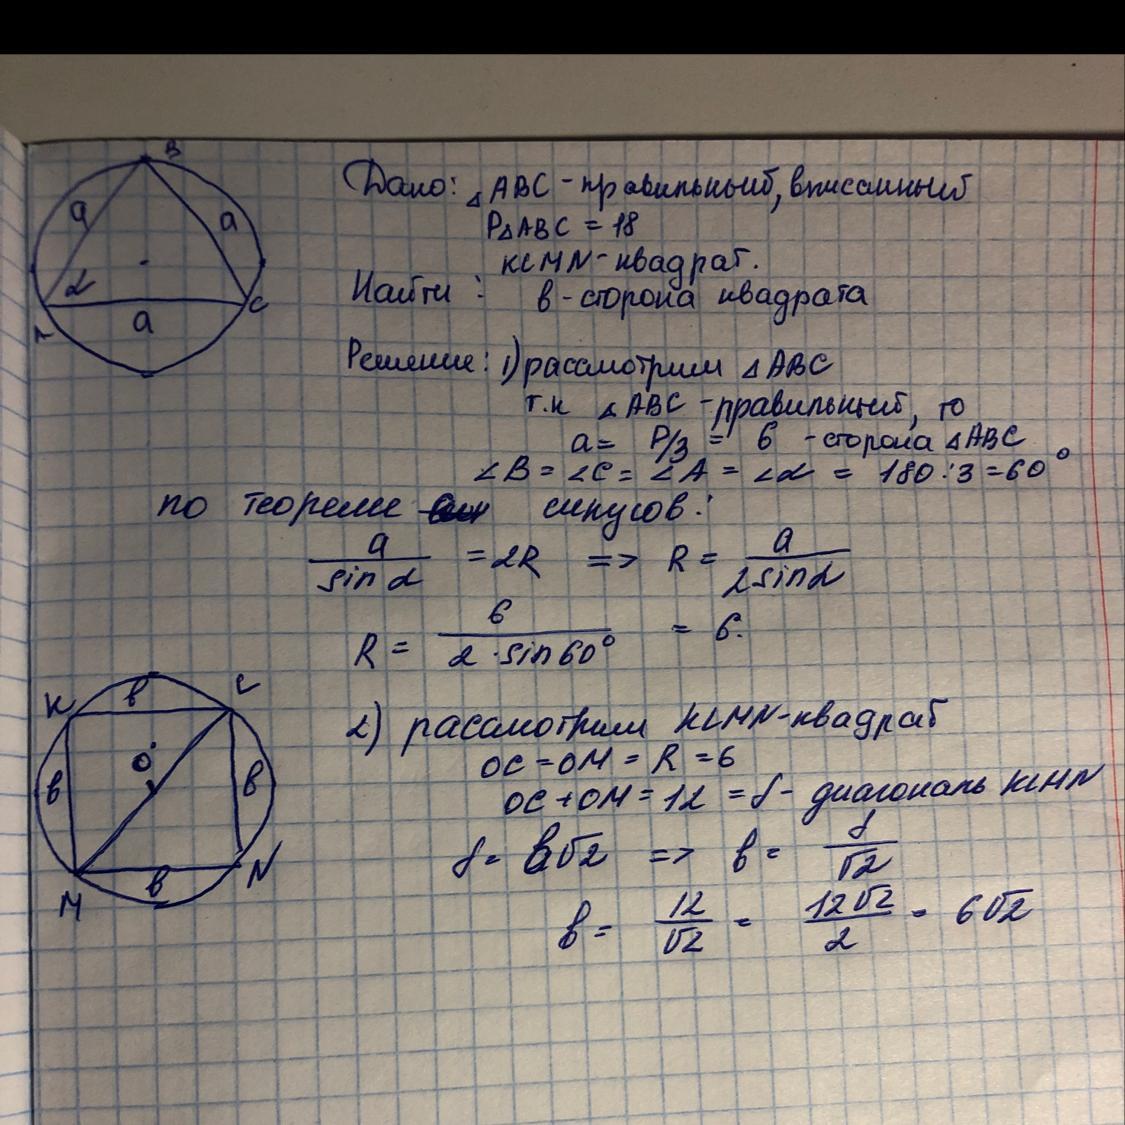 B
a
a
α
a
C
Дано: △ABC - правильный, вписанный
P△ABC = 18
KCMN - квадрат.
Найти: в - сторона квадрата
Решение: 1) рассмотрим △ABC
т.к △ABC - правильный, то
a = P/3 = 6 - сторона △ABC
∠B = ∠C = ∠A = ∠α = 180:3 = 60°
по теореме синусов:
a/sin α = 2R => R = a/2sin α
R = 6/2·sin60° = 6.
K
в
C
O
в
в
M
в
N
2) рассмотрим KCMN - квадрат
OC = OM = R = 6
OC + OM = 12 = d - диагональ KCMN
d = в√2 => в = d/√2
в = 12/√2 = 12√2/2 = 6√2